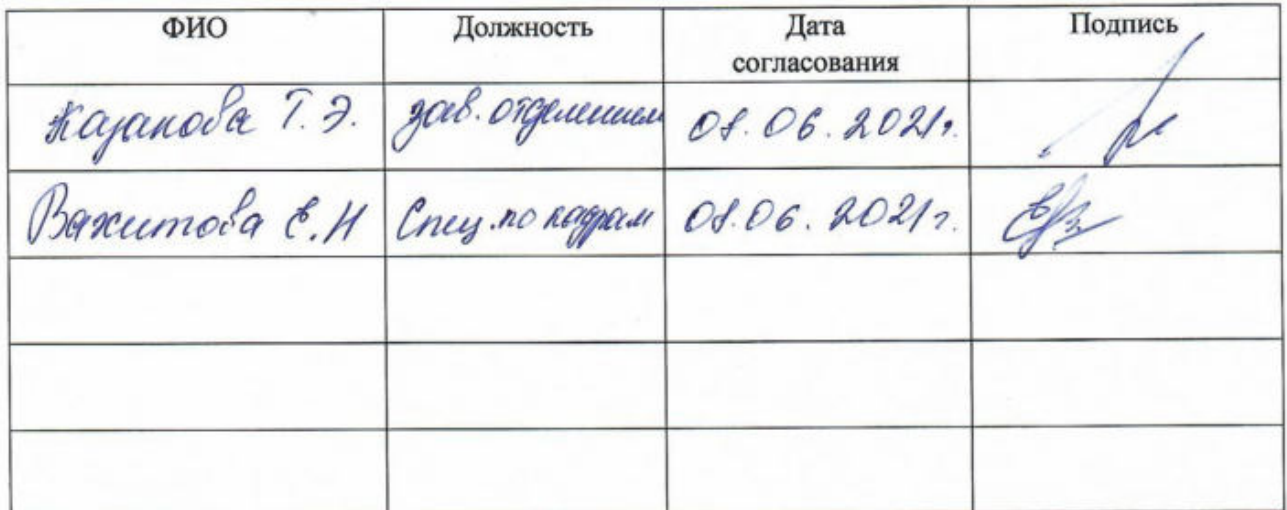 ФИО Должность Дата согласования Подпись
Казакова Т. Э. зав. отделением 08.06.2021г.
Вахитова Е.Н Спец. по кадрам 08.06.2021г.